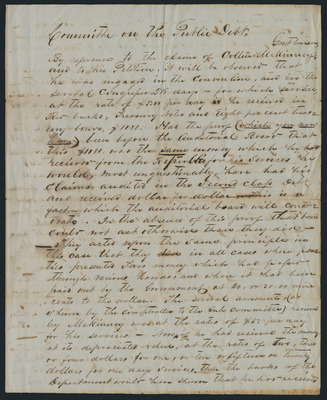 Committee on the Public Debt,
By reference to the claim of Collin McKinney,
and to his Petition, it will be observed that
he was engaged in the Convention, and in the
several Congresses days – for which service
at the rate of $5.00 per day he received in
Star backs, Treasury Notes and eight per cent
bonds, $ Had the proof (which you now
have) been before the Auditorial Board that
this $ was the same money which he had
received from the Republic for his services they
would, most unquestionably, have had his
claims audited in the Second class debt
and received dollar for dollar – this is a
fact – which the auditorial board will
. In the absence of this proof that board
could not act otherwise than they did –
They acted upon the same principles in
this case that they did in all cases when
presented that money which had passed
through many hands; and where it had been
paid out by the Government at 20, or 30 or more
cents to the dollar. The several amounts (as
shown by the comptroller to the sub Committee) received
by McKinney was at the rates of $5.00 per day,
for his services. Now, if he has received this money
at its depreciated value, at the rates of two, three
or four dollars for one, or ten or fifteen or twenty
dollars for one days service, then the books of the
Department would have shown that he had received